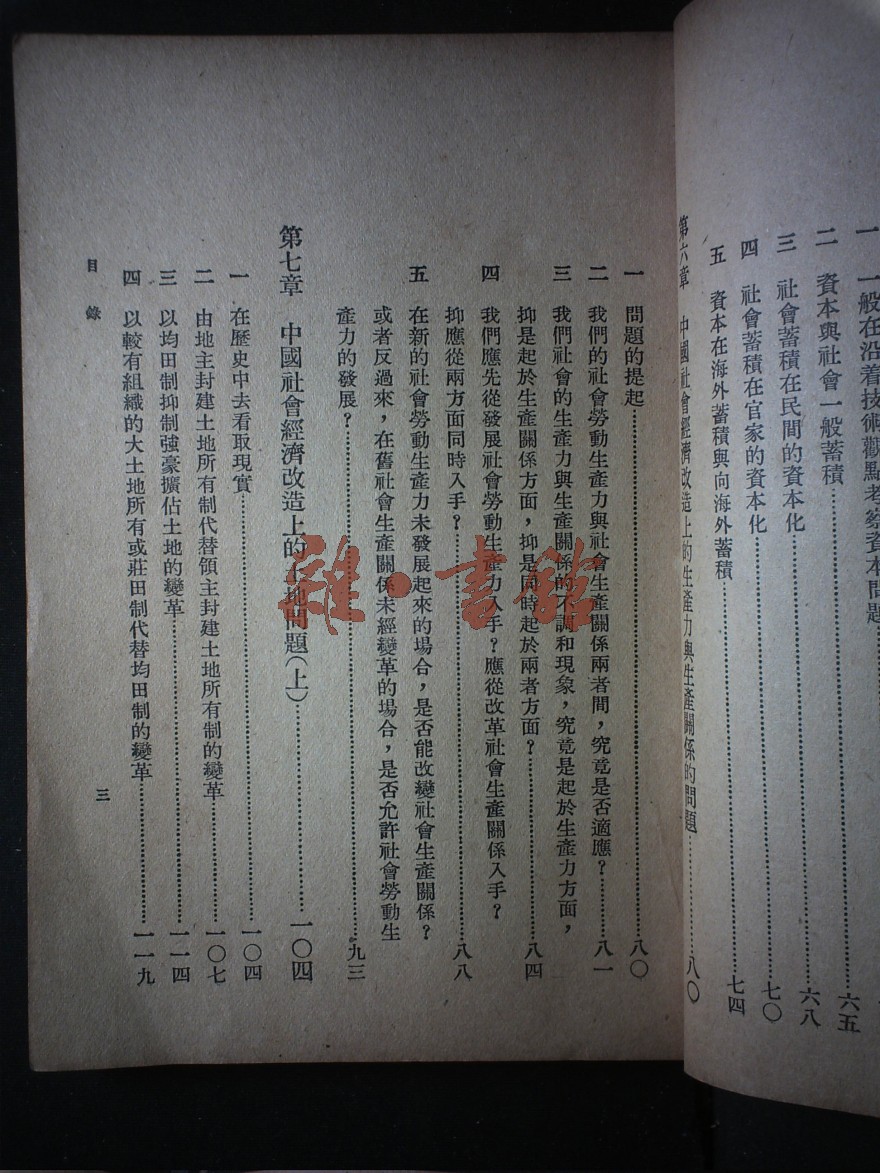 一　一般在沿着技術觀點考察資本問題
二　資本與社會一般蓄積……六五
三　社會蓄積在民間的資本化……六八
四　社會蓄積在官家的資本化……七〇
五　資本在海外蓄積與向海外蓄積……七四
第六章　中國社會經濟改造上的生產力與生產關係的問題……八〇
一　問題的提起……八〇
二　我們的社會勞動生產力與社會生產關係兩者間，究竟是否適應？……八一
三　我們社會的生產力與生產關係的不調和現象，究竟是起於生產力方面，
抑是起於生產關係方面，抑是同時起於兩者方面？……八四
四　我們應先從發展社會勞動生產力入手？應從改革社會生產關係入手？
抑應從兩方面同時入手？……八八
五　在新的社會勞動生產力未發展起來的場合，是否能改變社會生產關係？
或者反過來，在舊社會生產關係未經變革的場合，是否允許社會勞動生
產力的發展？……九三
第七章　中國社會經濟改造上的土地問題（上）……一〇四
一　在歷史中去看取現實……一〇四
二　由地主封建土地所有制代替領主封建土地所有制的變革……一〇七
三　以均田制抑制強豪擴佔土地的變革……一一四
四　以較有組織的大土地所有或莊田制代替均田制的變革……一一九
目錄
三
雜·書館